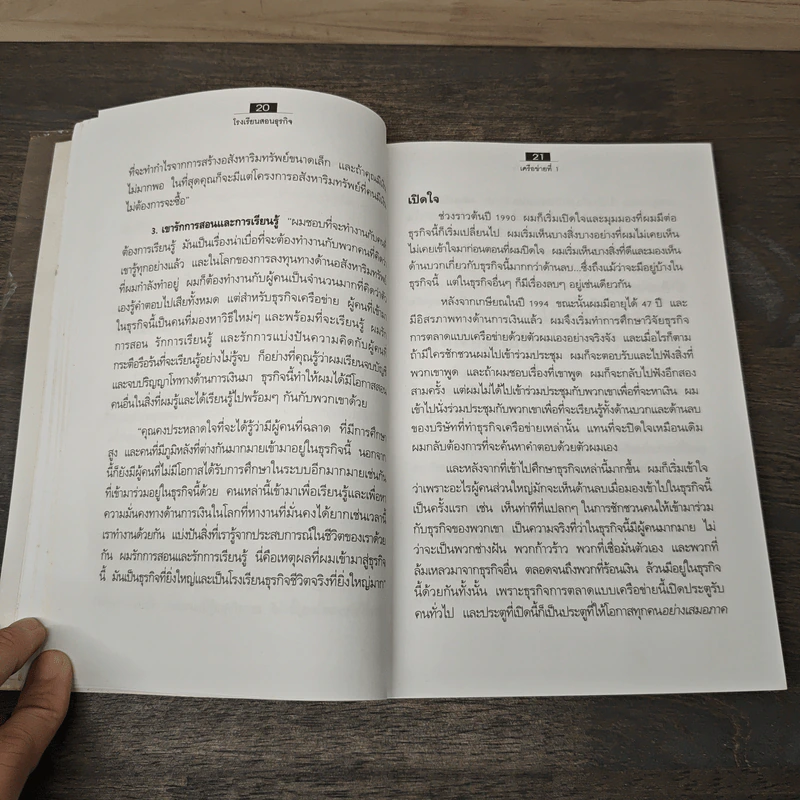 20
โรงเรียนสอนธุรกิจ
ที่จะทำกำไรจากการสร้างอสังหาริมทรัพย์ขนาดเล็ก และถ้าคุณมีเงิน
ไม่มากพอ ในที่สุดคุณก็จะมีแต่โครงการอสังหาริมทรัพย์ที่คนมีเงิน
ไม่ต้องการจะซื้อ"
3. เขารักการสอนและการเรียนรู้ "ผมชอบที่จะทำงานกับคนที่
ต้องการเรียนรู้ มันเป็นเรื่องน่าเบื่อที่จะต้องทำงานกับพวกคนที่คิดว่า
เขารู้ทุกอย่างแล้ว และในโลกของการลงทุนทางด้านอสังหาริมทรัพย์
ที่ผมกำลังทำอยู่ ผมก็ต้องทำงานกับผู้คนเป็นจำนวนมากที่คิดว่าตัว
เองรู้คำตอบไปเสียทั้งหมด แต่สำหรับธุรกิจเครือข่าย ผู้คนที่เข้ามา
ในธุรกิจนี้เป็นคนที่มองหาวิธีใหม่ๆ และพร้อมที่จะเรียนรู้ ผมรัก
การสอน รักการเรียนรู้ และรักการแบ่งปันความคิดกับผู้คนที่
กระตือรือร้นที่จะเรียนรู้อย่างไม่รู้จบ ก็อย่างที่คุณรู้ว่าผมเรียนจบบัญชี
และจบปริญญาโททางด้านการเงินมา ธุรกิจนี้ทำให้ผมได้มีโอกาสสอน
คนอื่นในสิ่งที่ผมรู้และได้เรียนรู้ไปพร้อมๆ กันกับพวกเขาด้วย
"คุณคงประหลาดใจที่จะได้รู้ว่ามีผู้คนที่ฉลาด ที่มีการศึกษา
สูง และคนที่มีภูมิหลังที่ต่างกันมากมายเข้ามาอยู่ในธุรกิจนี้ นอกจาก
นี้ก็ยังมีผู้คนที่ไม่มีโอกาสได้รับการศึกษาในระบบอีกมากมายเช่นกัน
ที่เข้ามาร่วมอยู่ในธุรกิจนี้ด้วย คนเหล่านี้เข้ามาเพื่อเรียนรู้และเพื่อหา
ความมั่นคงทางด้านการเงินในโลกที่หางานที่มั่นคงได้ยากเช่นเวลานี้
เราทำงานด้วยกัน แบ่งปันสิ่งที่เรารู้จากประสบการณ์ในชีวิตของเราด้วย
กัน ผมรักการสอนและรักการเรียนรู้ นี่คือเหตุผลที่ผมเข้ามาสู่ธุรกิจ
นี้ มันเป็นธุรกิจที่ยิ่งใหญ่และเป็นโรงเรียนธุรกิจชีวิตจริงที่ยิ่งใหญ่มาก"
21
เครือข่ายที่ 1
เปิดใจ
ช่วงราวต้นปี 1990 ผมก็เริ่มเปิดใจและมุมมองที่ผมมีต่อ
ธุรกิจนี้ก็เริ่มเปลี่ยนไป ผมเริ่มเห็นบางสิ่งบางอย่างที่ผมไม่เคยเห็น
ไม่เคยเข้าใจมาก่อนตอนที่ผมปิดใจ ผมเริ่มเห็นบางสิ่งที่ดีและมองเห็น
ด้านบวกเกี่ยวกับธุรกิจนี้มากกว่าด้านลบ...ซึ่งถึงแม้ว่าจะมีอยู่บ้างใน
ธุรกิจนี้ แต่ในธุรกิจอื่นๆ ก็มีเรื่องลบๆ อยู่เช่นเดียวกัน
หลังจากเกษียณในปี 1994 ขณะนั้นผมมีอายุได้ 47 ปี และ
มีอิสรภาพทางด้านการเงินแล้ว ผมจึงเริ่มทำการศึกษาวิจัยธุรกิจ
การตลาดแบบเครือข่ายด้วยตัวผมเองอย่างจริงจัง และเมื่อไรก็ตาม
ถ้ามีใครชักชวนผมไปเข้าร่วมประชุม ผมก็จะตอบรับและไปฟังสิ่งที่
พวกเขาพูด และถ้าผมชอบเรื่องที่เขาพูด ผมก็จะกลับไปฟังอีกสอง
สามครั้ง แต่ผมไม่ได้ไปเข้าร่วมประชุมกับพวกเขาเพื่อที่จะหาเงิน ผม
เข้าไปนั่งร่วมประชุมกับพวกเขาเพื่อที่จะเรียนรู้ทั้งด้านบวกและด้านลบ
ของบริษัทที่ทำธุรกิจเครือข่ายเหล่านั้น แทนที่จะปิดใจเหมือนเดิม
ผมกลับต้องการที่จะค้นหาคำตอบด้วยตัวผมเอง
และหลังจากที่เข้าไปศึกษาธุรกิจเหล่านี้มากขึ้น ผมก็เริ่มเข้าใจ
ว่าเพราะอะไรผู้คนส่วนใหญ่มักจะเห็นด้านลบเมื่อมองเข้าไปในธุรกิจนี้
เป็นครั้งแรก เช่น เห็นท่าทีที่แปลกๆ ในการชักชวนคนให้เข้ามาร่วม
กับธุรกิจของพวกเขา เป็นความจริงที่ว่าในธุรกิจนี้มีผู้คนมากมาย ไม่
ว่าจะเป็นพวกช่างฝัน พวกก้าวร้าว พวกที่เชื่อมั่นตัวเอง และพวกที่
ล้มเหลวมาจากธุรกิจอื่น ตลอดจนถึงพวกที่ร้อนเงิน ล้วนมีอยู่ในธุรกิจ
นี้ด้วยกันทั้งนั้น เพราะธุรกิจการตลาดแบบเครือข่ายนี้เปิดประตูรับ
คนทั่วไป และประตูที่เปิดนี้ก็เป็นประตูที่ให้โอกาสทุกคนอย่างเสมอภาค